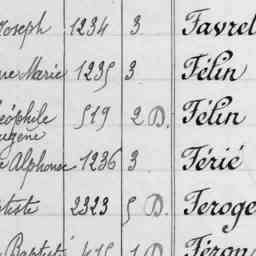 Joseph 1234 3 Favrel
Marie 1235 3 Félin
Théophile 519 2 D. Félin
Eugène
Alphonse 1236 3 Férié
2323 5 D. Feroge
Baptiste 1 D. Féron